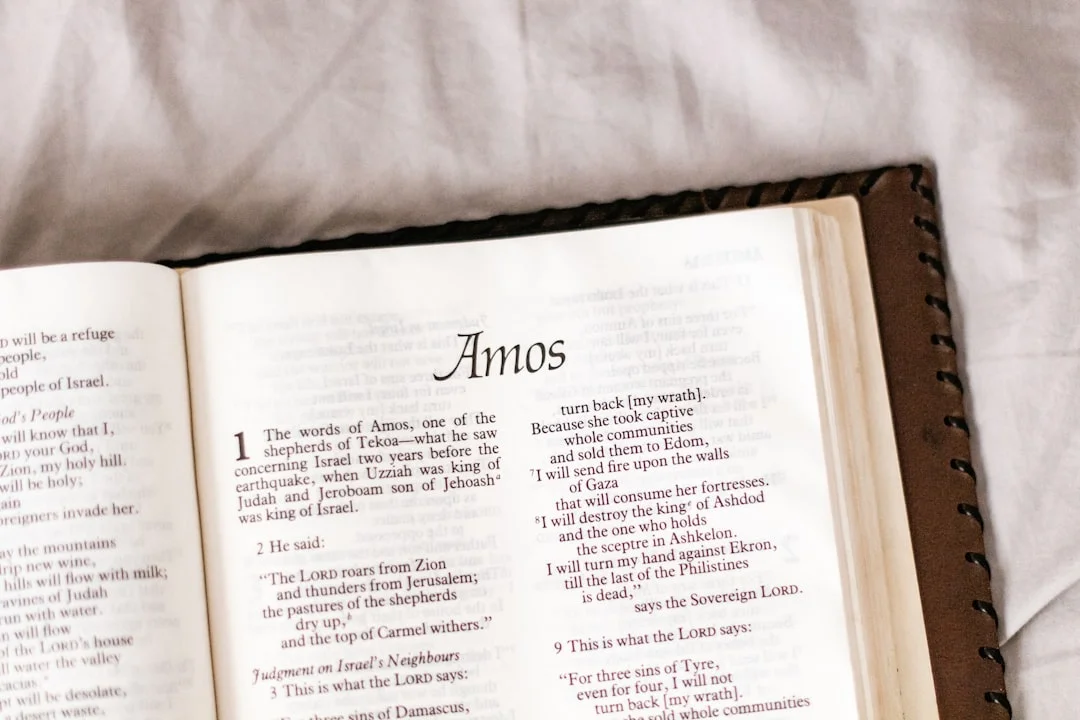 will be a refuge
people,
old
people of Israel.
God's People
will know that I,
your God,
Zion, my holy hill.
will be holy;
foreigners invade her.
the mountains
drip new wine,
hills will flow with milk;
ravines of Judah
run with water.
will flow
of the LORD's house
water the valley
will be desolate,
desert waste,
Amos
1 The words of Amos, one of the
shepherds of Tekoa—what he saw
concerning Israel two years before the
earthquake, when Uzziah was king of
Judah and Jeroboam son of Jehoash a
was king of Israel.
2 He said:
“The LORD roars from Zion
and thunders from Jerusalem;
the pastures of the shepherds
dry up, b
and the top of Carmel withers.”
Judgment on Israel's Neighbours
3 This is what the LORD says:
three sins of Damascus,
turn back [my wrath].
Because she took captive
whole communities
and sold them to Edom,
7 I will send fire upon the walls
of Gaza
that will consume her fortresses.
8 I will destroy the king c of Ashdod
and the one who holds
the sceptre in Ashkelon.
I will turn my hand against Ekron,
till the last of the Philistines
is dead,”
says the Sovereign LORD.
9 This is what the LORD says:
“For three sins of Tyre,
even for four, I will not
turn back [my wrath].
she sold whole communities